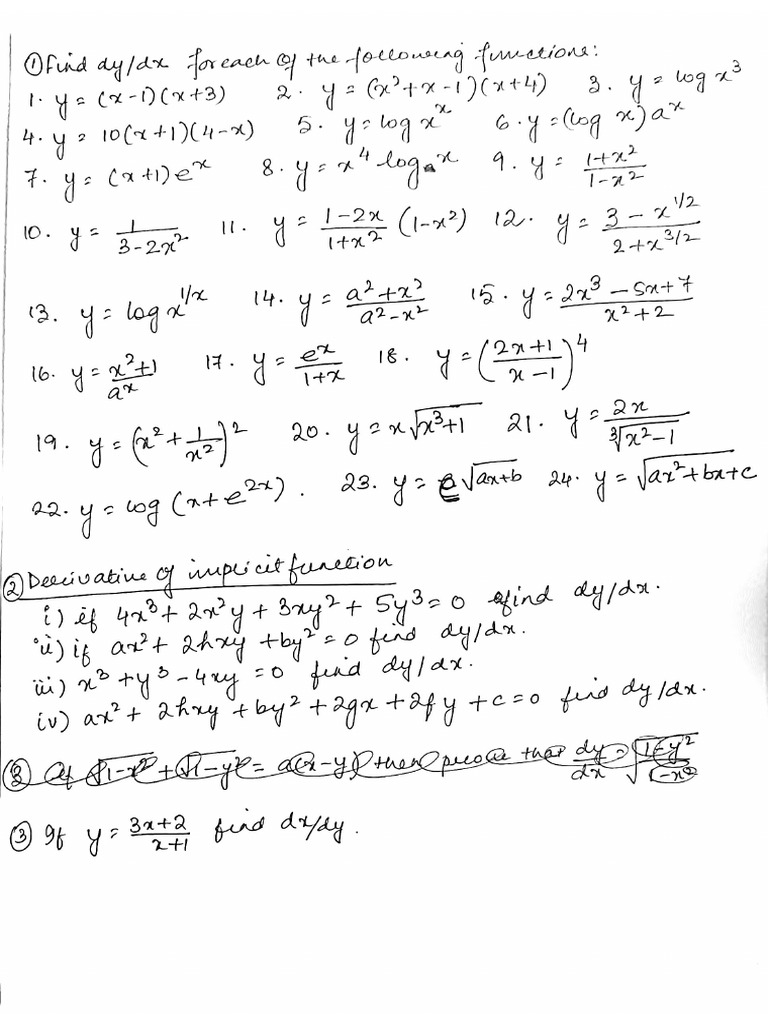 ① Find dy/dx for each of the following functions:
1. y = (x-1)(x+3) 2. y = (x²+x-1)(x+4) 3. y = log x³
4. y = 10(x+1)(4-x) 5. y = log x^x 6. y = (log x) a^x
7. y = (x+1)e^x 8. y = x⁴ log x 9. y = (1+x²)/(1-x²)
10. y = 1/(3-2x²) 11. y = (1-2x)/(1+x²) (1-x²) 12. y = (3-x^1/2)/(2+x^3/2)
13. y = log x^1/x 14. y = (a²+x²)/(a²-x²) 15. y = (2x³-5x+7)/(x²+2)
16. y = (x²+1)/a^x 17. y = e^x/(1+x) 18. y = ((2x+1)/(x-1))⁴
19. y = (x²+1/x²)² 20. y = x√(x³+1) 21. y = 2x/∛(x²-1)
22. y = log(x+e^2x). 23. y = e^√(ax+b) 24. y = √(ax²+bx+c)
② Derivative of implicit function
i) if 4x³+2x²y+3xy²+5y³=0 find dy/dx.
ii) if ax²+2hxy+by²=0 find dy/dx.
iii) x³+y³-4xy=0 find dy/dx.
iv) ax²+2hxy+by²+2gx+2fy+c=0 find dy/dx.
③ If √(1-x²)+√(1-y²)=a(x-y) then prove that dy/dx=√((1-y²)/(1-x²))
③ If y = (3x+2)/(x+1) find dx/dy.